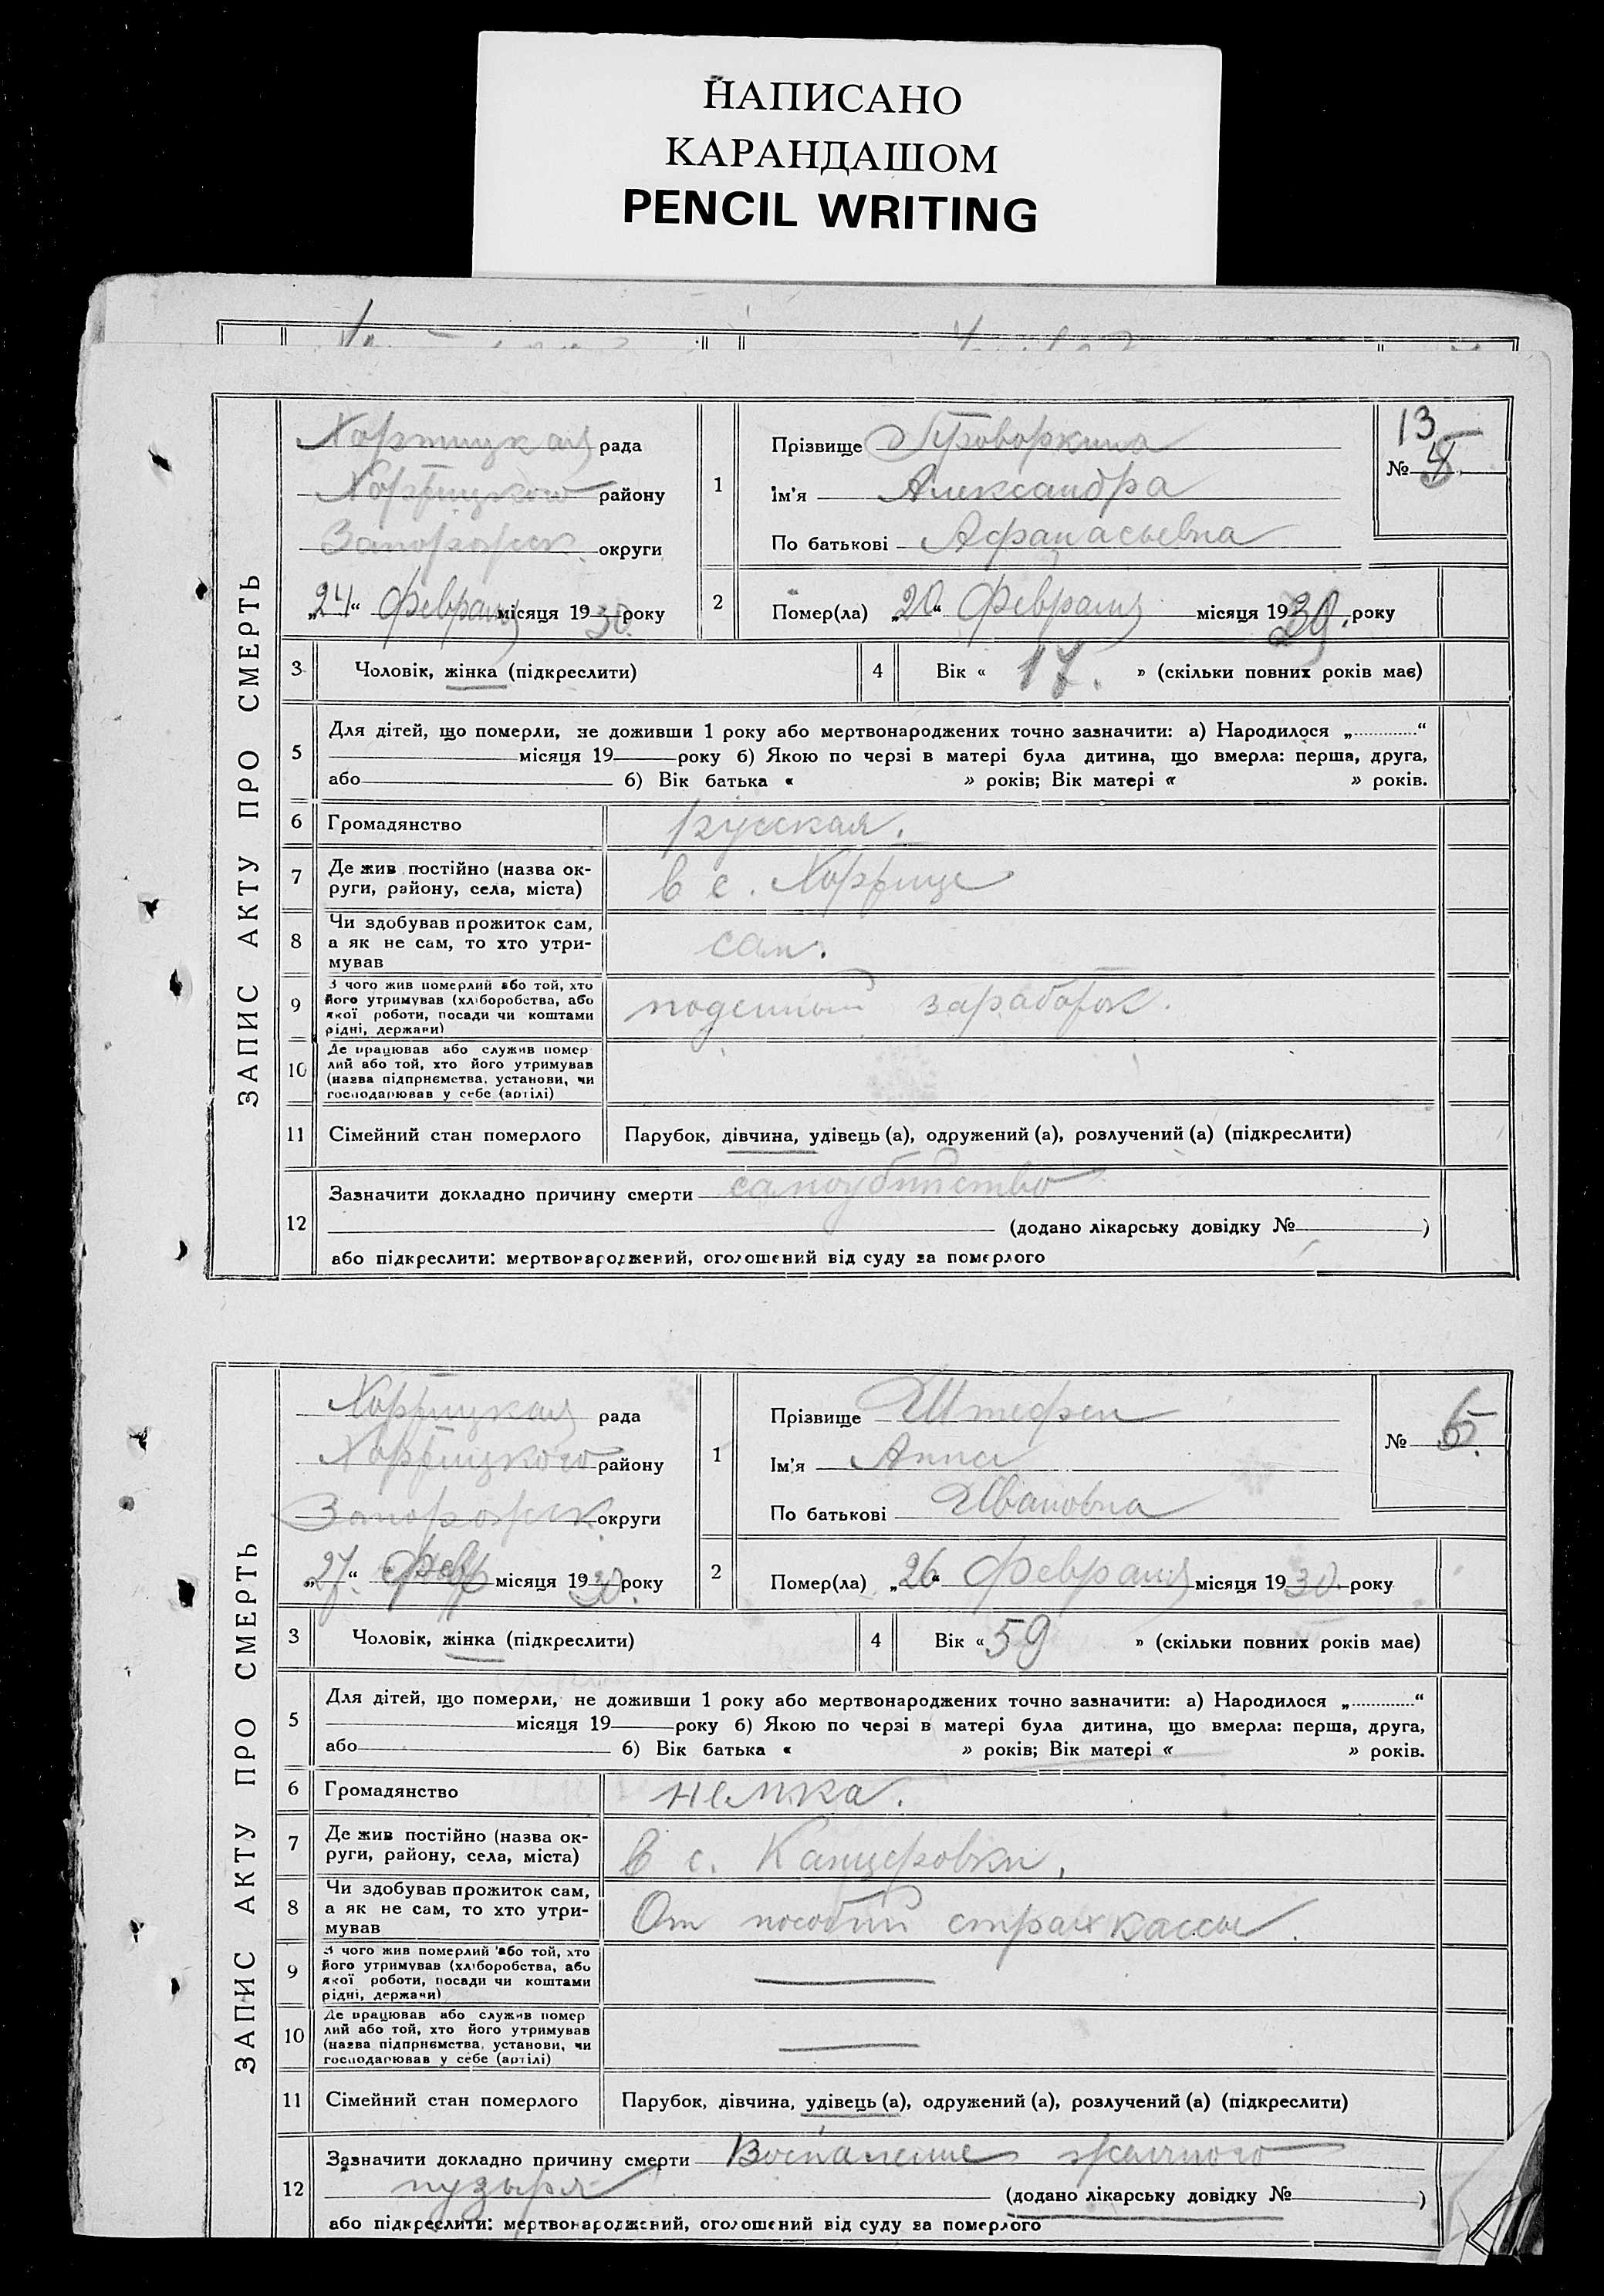 НАПИСАНО
КАРАНДАШОМ
PENCIL WRITING
ЗАПИС АКТУ ПРО СМЕРТЬ
Хортицкая рада
Хортицкого району
Запорожск. округи
„24“ февраля місяця 1930 року
1
Прізвище Проворкина
Ім'я Александра
По батькові Афанасьевна
13
№
2
Помер(ла) „20“ февраля місяця 1930 року
3 Чоловік, жінка (підкреслити)
4 Вік « 17. » (скільки повних років має)
5
Для дітей, що померли, не доживши 1 року або мертвонароджених точно зазначити: а) Народилося „............“
місяця 19 року б) Якою по черзі в матері була дитина, що вмерла: перша, друга,
або б) Вік батька « » років; Вік матері « » років.
6 Громадянство русская.
7 Де жив постійно (назва ок-
руги, району, села, міста) в с. Хортице
8 Чи здобував прожиток сам,
а як не сам, то хто утри-
мував сам.
9 З чого жив померлий або той, хто
його утримував (хліборобства, або
якої роботи, посади чи коштами
рідні, держави) поденный заработок.
10 Де працював або служив помер
лий або той, хто його утримував
(назва підприємства, установи, чи
господарював у себе (артілі)
11 Сімейний стан померлого Парубок, дівчина, удівець (а), одружений (а), розлучений (а) (підкреслити)
12 Зазначити докладно причину смерти самоубийство
(додано лікарську довідку № )
або підкреслити: мертвонароджений, оголошений від суду за померлого
ЗАПИС АКТУ ПРО СМЕРТЬ
Хортицкая рада
Хортицкого району
Запорожск. округи
„27“ февр місяця 1930. року
1
Прізвище Штефен
Ім'я Анна
По батькові Ивановна
№
2
Помер(ла) „26“ февраля місяця 1930. року
3 Чоловік, жінка (підкреслити)
4 Вік « 59 » (скільки повних років має)
5
Для дітей, що померли, не доживши 1 року або мертвонароджених точно зазначити: а) Народилося „............“
місяця 19 року б) Якою по черзі в матері була дитина, що вмерла: перша, друга,
або б) Вік батька « » років; Вік матері « » років.
6 Громадянство немка.
7 Де жив постійно (назва ок-
руги, району, села, міста) в с. Канцеровки.
8 Чи здобував прожиток сам,
а як не сам, то хто утри-
мував От пособий страхкассы.
9 З чого жив померлий або той, хто
його утримував (хліборобства, або
якої роботи, посади чи коштами
рідні, держави)
10 Де працював або служив помер
лий або той, хто його утримував
(назва підприємства, установи, чи
господарював у себе (артілі)
11 Сімейний стан померлого Парубок, дівчина, удівець (а), одружений (а), розлучений (а) (підкреслити)
12 Зазначити докладно причину смерти Воспаление желчного
пузыря (додано лікарську довідку № )
або підкреслити: мертвонароджений, оголошений від суду за померлого